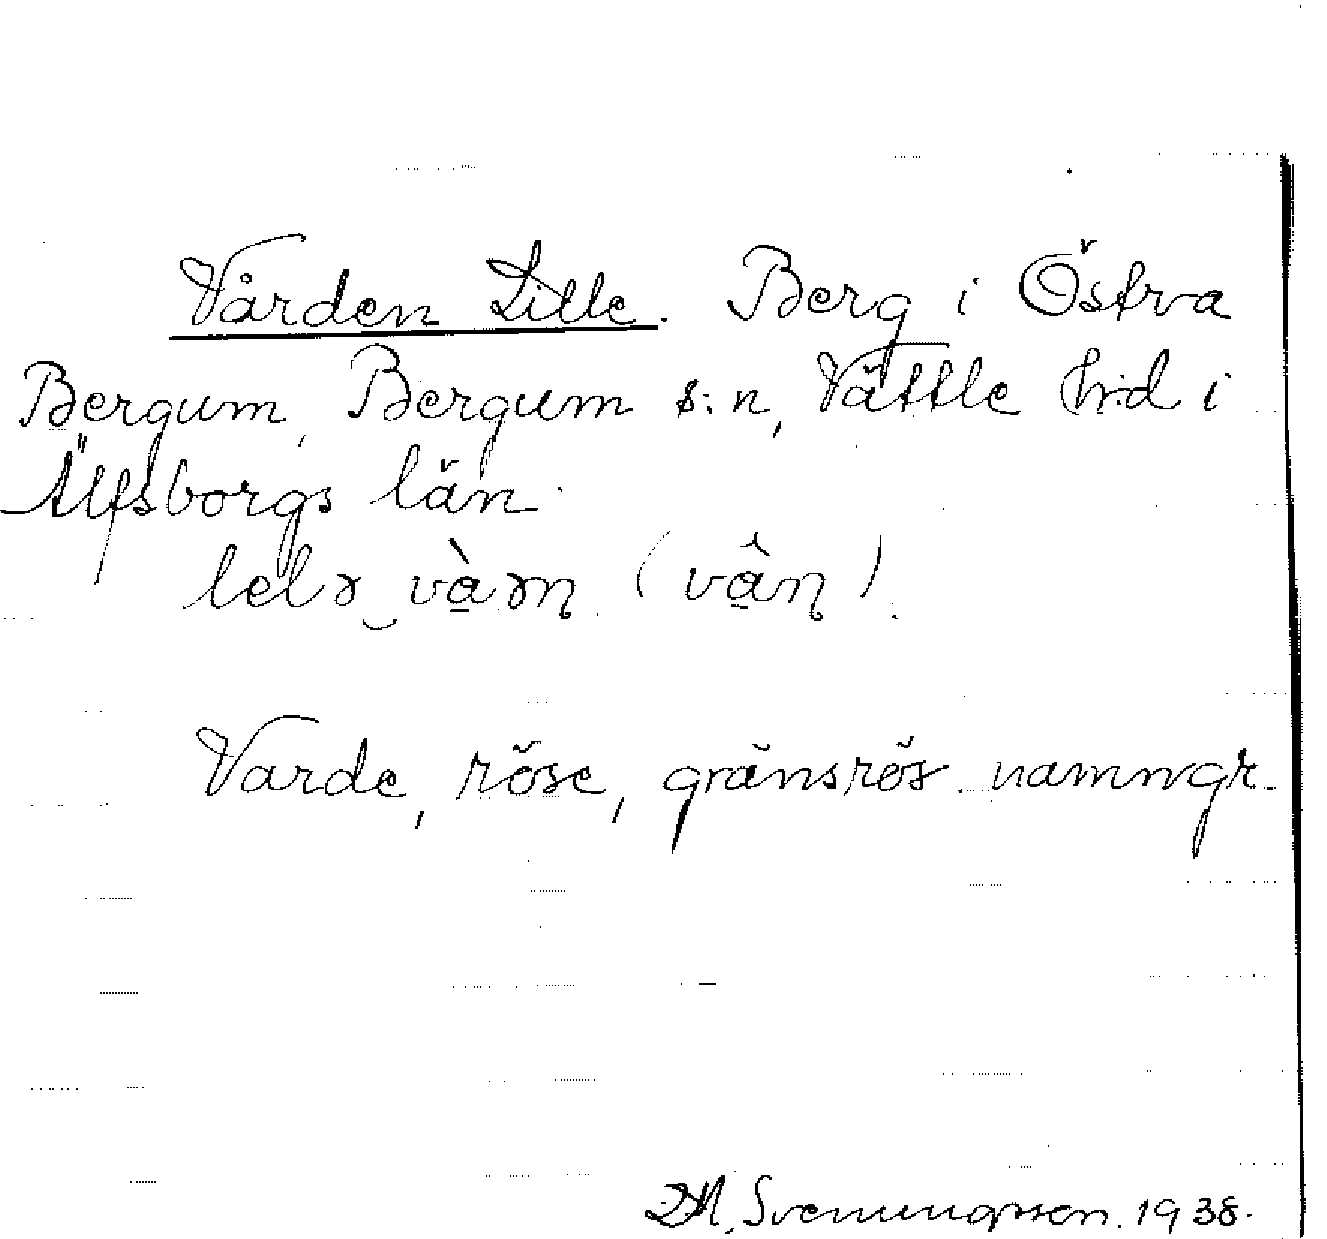 Vården Lille. Berg i Östra
Bergum, Bergum s:n, Vättle hrd i
Älfsborgs län.
lelə vàəɳ (vâɳ).
Varde, röse, gränsrös namngr.
Svenungsson. 1938.